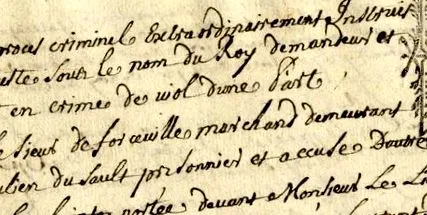 procès criminel Extraordinairement Instruit
sous le nom du Roy demandeur et
en crime de viol dune part
le sieur de forceville marchand demeurant
Julien du Sault prisonnier et accusé Dautre
portée devant Monsieur Le